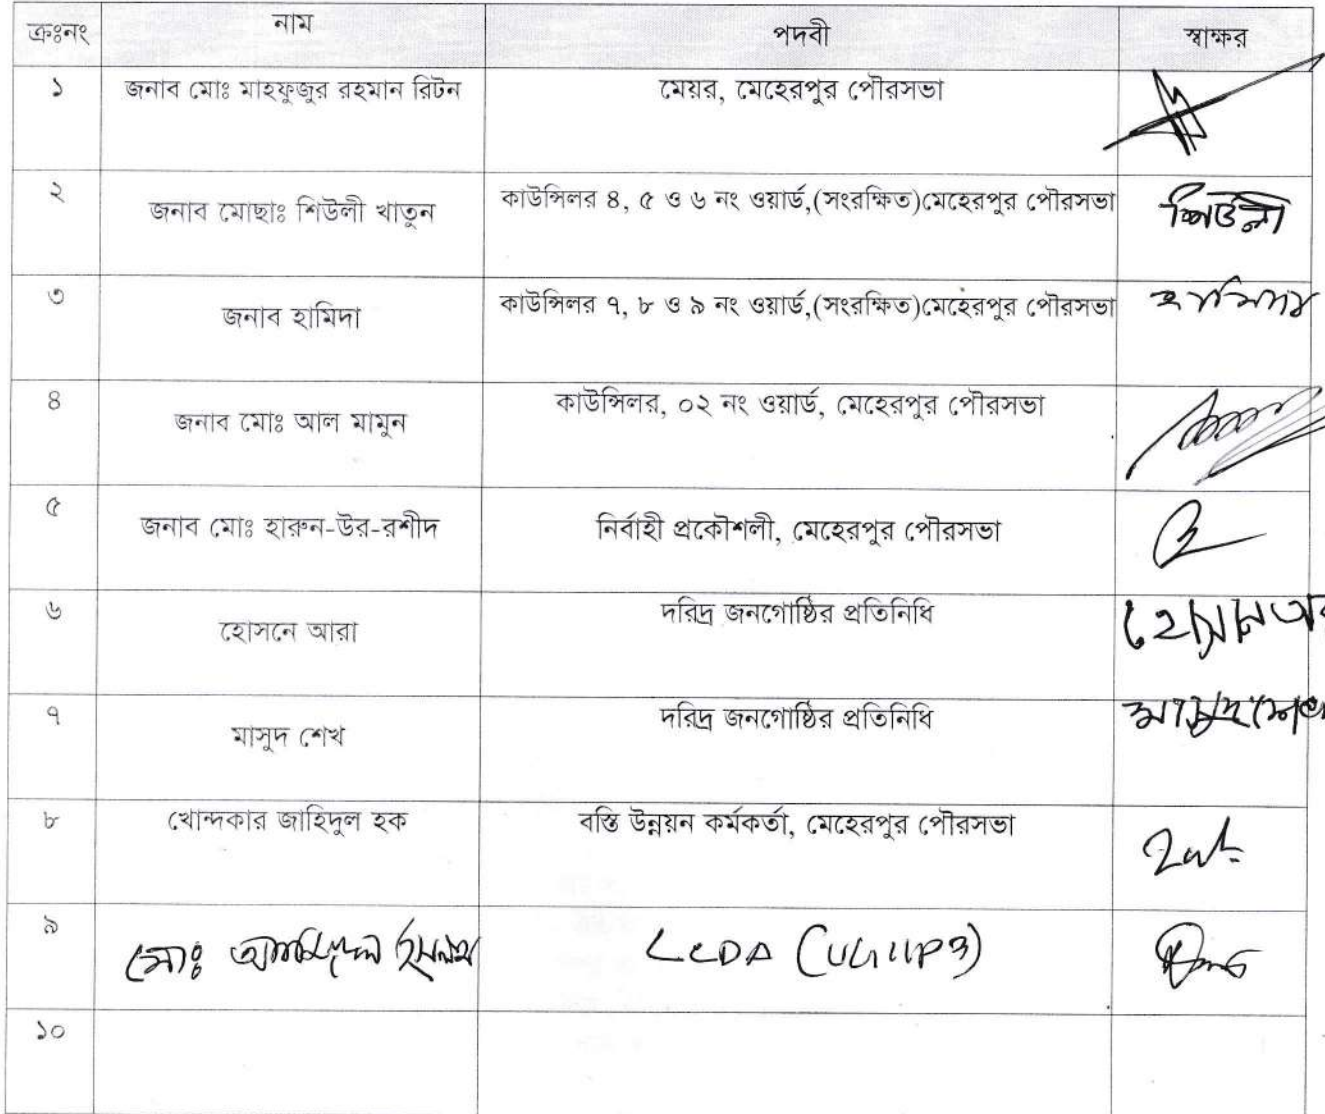 ক্রঃনং নাম পদবী স্বাক্ষর
১ জনাব মোঃ মাহফুজুর রহমান রিটন মেয়র, মেহেরপুর পৌরসভা
২ জনাব মোছাঃ শিউলী খাতুন কাউন্সিলর ৪, ৫ ও ৬ নং ওয়ার্ড,(সংরক্ষিত)মেহেরপুর পৌরসভা শিউলী
৩ জনাব হামিদা কাউন্সিলর ৭, ৮ ও ৯ নং ওয়ার্ড,(সংরক্ষিত)মেহেরপুর পৌরসভা
৪ জনাব মোঃ আল মামুন কাউন্সিলর, ০২ নং ওয়ার্ড, মেহেরপুর পৌরসভা
৫ জনাব মোঃ হারুন-উর-রশীদ নির্বাহী প্রকৌশলী, মেহেরপুর পৌরসভা
৬ হোসনে আরা দরিদ্র জনগোষ্ঠির প্রতিনিধি
৭ মাসুদ শেখ দরিদ্র জনগোষ্ঠির প্রতিনিধি মাসুদ শেখ
৮ খোন্দকার জাহিদুল হক বস্তি উন্নয়ন কর্মকর্তা, মেহেরপুর পৌরসভা
৯ মোঃ ইসলাম LCDA (UGIIP3)
১০